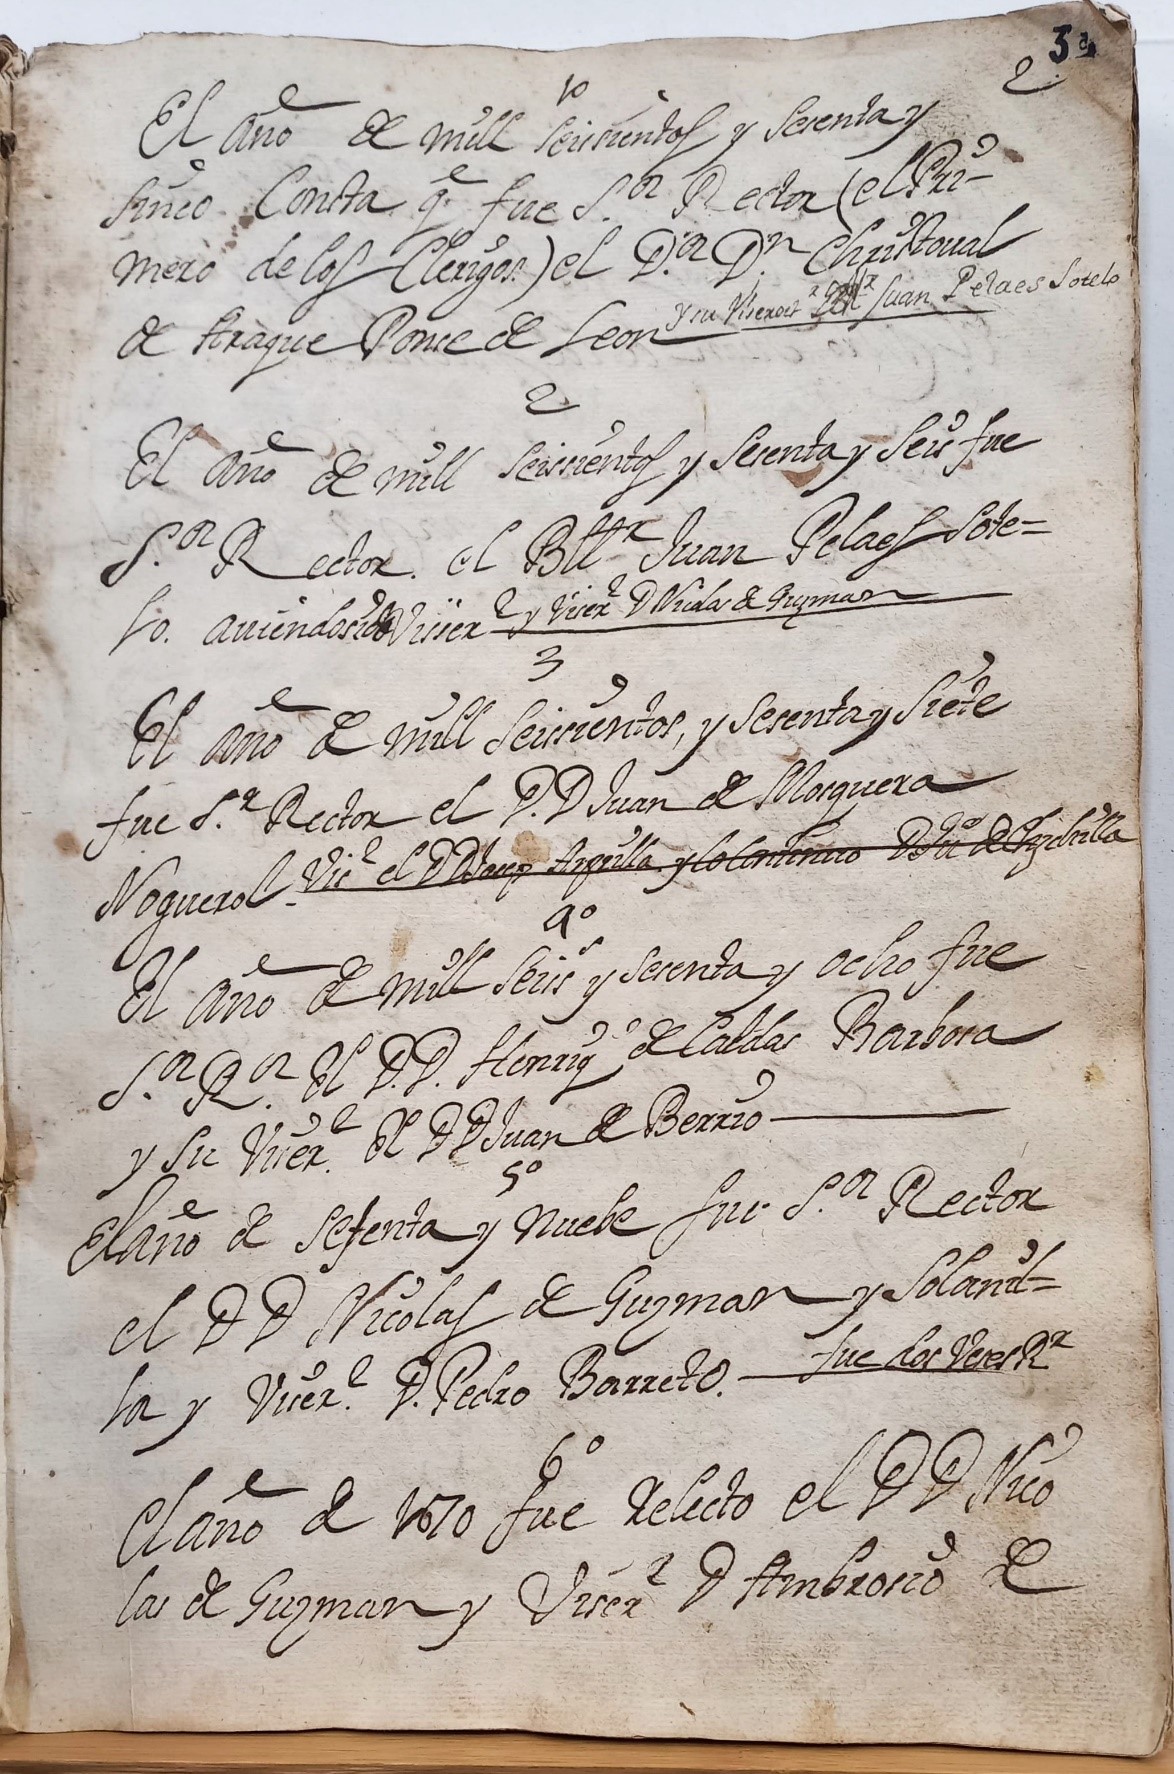 3
2
1º
El año de mill seiscientos y sesenta y
sinco Consta q.e fue S.or Rector (el Pri-
mero de los Clerigos) el D.or D.n Christoual
de Araque Ponce de Leon y su Viserect.r Juan Pelaes Sotelo
2
El año de mill seiscientos y sesenta y seis fue
S.or Rector. el Bllr Juan Pelaes Sote-
lo. auiendo sido Viser.r y Viser.r D Nicolas de Guzman
3
El año de mill seiscientos, y sesenta y siete
fue S.r Rector el D. D Juan de Mosquera
Noguerol. Vic.r el D D Josep y lo Continuo D
4º
El año de mill seis.s y sesenta y ocho fue
S.or R.or El D. D. Henriq.e de Caldas Barbosa
y su Viser.r El D D Juan de Berrio
5º
El año de sesenta y nuebe fue S.or Rector
el D D Nicolas de Guzman y Solanil-
la y Viser.r D. Pedro Barreto. fue dos Veses R.r
6º
El año de 1670 fue Relecto el D D Nico
las de Guzman y Viser.r D Ambrosio de